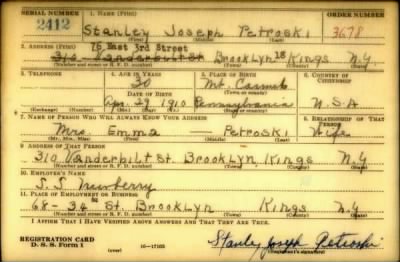 SERIAL NUMBER 1. NAME (Print) ORDER NUMBER
2412 Stanley Joseph Petroski 3678
(First) (Middle) (Last)
76 East 3rd Street
2. ADDRESS (Print)
310 Vanderbilt St. Brooklyn 18 Kings N.Y
(Number and street or R. F. D. number) (Town) (County) (State)
3. TELEPHONE 4. AGE IN YEARS 5. PLACE OF BIRTH 6. COUNTRY OF CITIZENSHIP
30 Mt. Carmel
DATE OF BIRTH (Town or county)
Apr. 29 1910 Pennsylvania U.S.A
(Exchange) (Number) (Mo.) (Day) (Yr.) (State or country)
7. NAME OF PERSON WHO WILL ALWAYS KNOW YOUR ADDRESS 8. RELATIONSHIP OF THAT PERSON
Mrs. Emma — Petroski Wife
(Mr., Mrs., Miss) (First) (Middle) (Last)
9. ADDRESS OF THAT PERSON
310 Vanderbilt St. Brooklyn, Kings N.Y
(Number and street or R. F. D. number) (Town) (County) (State)
10. EMPLOYER'S NAME
J.J. Newberry
11. PLACE OF EMPLOYMENT OR BUSINESS
68-34 St. Brooklyn Kings N.Y
(Number and street or R. F. D. number) (Town) (County) (State)
I AFFIRM THAT I HAVE VERIFIED ABOVE ANSWERS AND THAT THEY ARE TRUE.
REGISTRATION CARD
D. S. S. Form 1 (over) 16—17105 Stanley Joseph Petroski
(Registrant's signature)